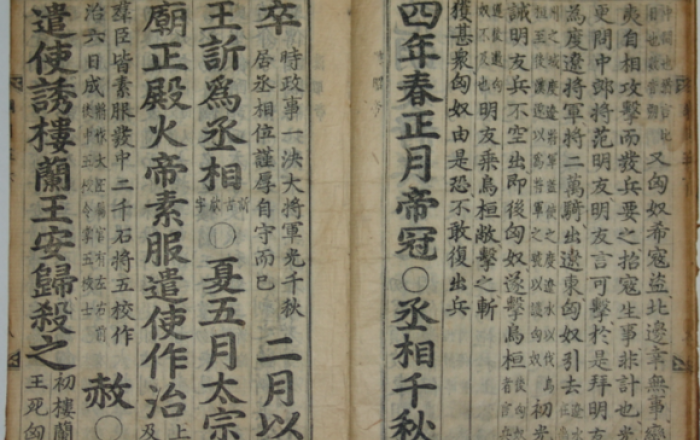 又匈奴希寇盜北邊幸無事蠻
夷自相攻擊而發兵要之招寇生事非計也光
更問中郎將范明友明友言可擊於是拜明友
為度遼將軍將二萬騎出遼東匈奴引去
初光
誡明友兵不空出即後匈奴遂擊烏桓
明友乘烏桓敝擊之斬
獲甚衆匈奴由是恐不敢復出兵
四年春正月帝冠〇丞相千秋
卒
時政事一決大將軍光千秋
居丞相位謹厚自守而已
二月以
王訢爲丞相
訢古欣字
〇夏五月太宗
廟正殿火帝素服遣使作治
上及
羣臣皆素服發中二千石將五校作
治六日成
赦〇
遣使誘樓蘭王安歸殺之
初樓蘭
王死匈